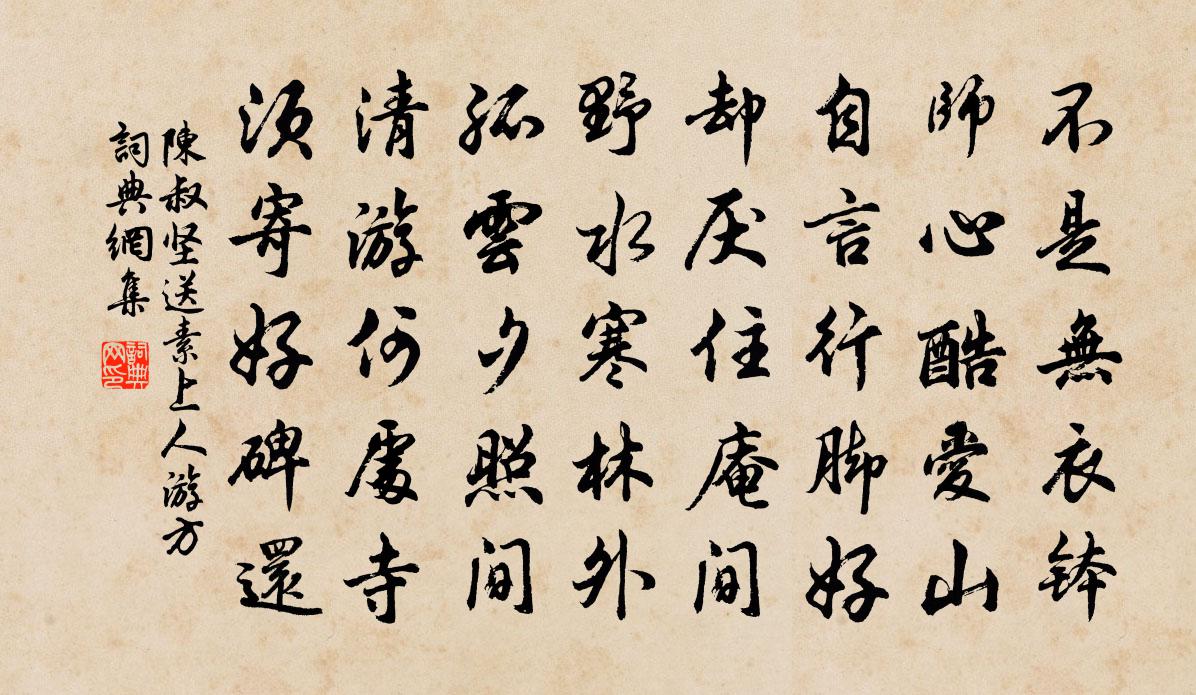 不是無衣鉢
師心酷愛山
自言行脚好
却厌住庵间
野水寒林外
孤雲夕照间
清游何處寺
须寄好碑還
陳叔坚送素上人游方
詞典網集
詞典网印